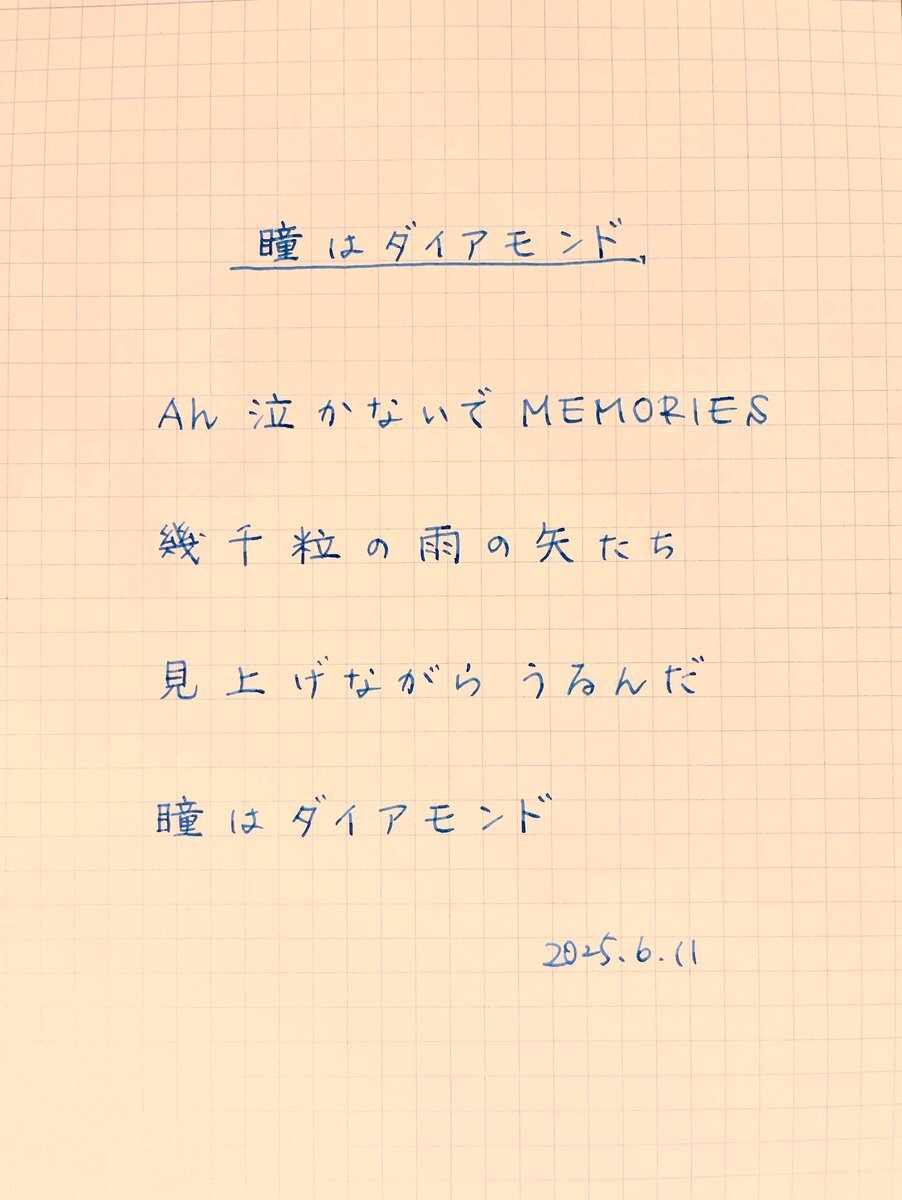 瞳はダイアモンド
Ah 泣かないで MEMORIES
幾千粒の雨の矢たち
見上げながら うるんだ
瞳はダイアモンド
2025.6.11